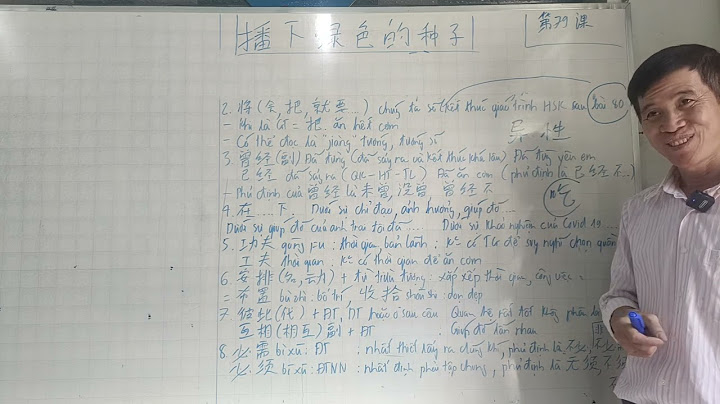 播下绿色的种子
第79课
2. 将 (会, 把, 就要...) chúng ta sẽ (kết thúc quá trình HSK sau bài 80)
- Khi là GT = 把. ăn hết cơm
- Có thể đọc là "jiàng" tướng, tướng sĩ
异性
3. 曾经 (副) Đã từng (đã xảy ra và kết thúc khá lâu) Đã từng yêu em
已经 đã xảy ra (QK-HT-TL) Đã ăn cơm (phủ định là 已经不...)
- Phủ định của 曾经 là 未曾, 没曾 曾经不
4. 在.....下. Dưới sự chỉ đạo, ảnh hưởng, giúp đỡ...
Dưới sự giúp đỡ của anh trai tôi đã.... Dưới sự khảo nghiệm của Covid 19....
5. 功夫 gōng fu: thời gian, bản lãnh: K° có TG để suy nghĩ chọn quần
工夫 thời gian: K° có thời gian để ăn cơm
6. 安排 + từ trừu tượng: sắp xếp thời gian, công việc
= 布置 bù zhì: bố trí, 收拾 shōu shi: dọn dẹp
7. 彼此 (代) + ĐT, DT hoặc ở sau câu Quan hệ rất tốt không phân
互相 (相互) 副 + ĐT : Giúp đỡ lẫn nhau
8. 必需 bì xū: ĐT : nhất thiết phủ định là 不必,
必须 bì xū: ĐTNN: nhất định phải tập chung, phủ định là 无须, 不须